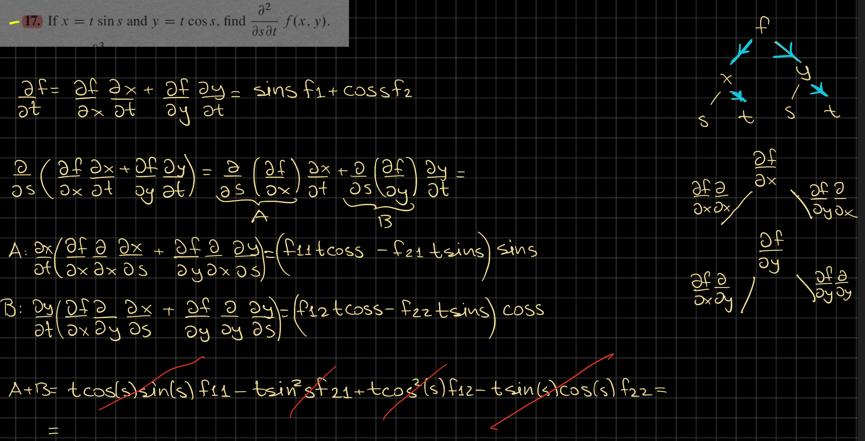 17. If x = t sin s and y = t cos s, find ∂²/∂s∂t f(x, y).
∂f/∂t = ∂f/∂x ∂x/∂t + ∂f/∂y ∂y/∂t = sins f1 + coss f2
∂/∂s (∂f/∂x ∂x/∂t + ∂f/∂y ∂y/∂t) = ∂/∂s (∂f/∂x) ∂x/∂t + ∂/∂s (∂f/∂y) ∂y/∂t =
A B
A: ∂x/∂t (∂f/∂x ∂/∂x ∂x/∂s + ∂f/∂y ∂/∂x ∂y/∂s) = (f11 t coss - f21 t sins) sins
B: ∂y/∂t (∂f/∂x ∂/∂y ∂x/∂s + ∂f/∂y ∂/∂y ∂y/∂s) = (f12 t coss - f22 t sins) coss
A+B = t cos(s) sin(s) f11 - t sin²s f21 + t cos²(s) f12 - t sin(s) cos(s) f22 =
=
f
x y
s t s t
∂f/∂x
∂f/∂x ∂/∂x ∂f/∂y ∂/∂x
∂f/∂y
∂f/∂x ∂/∂y ∂f/∂y ∂/∂y